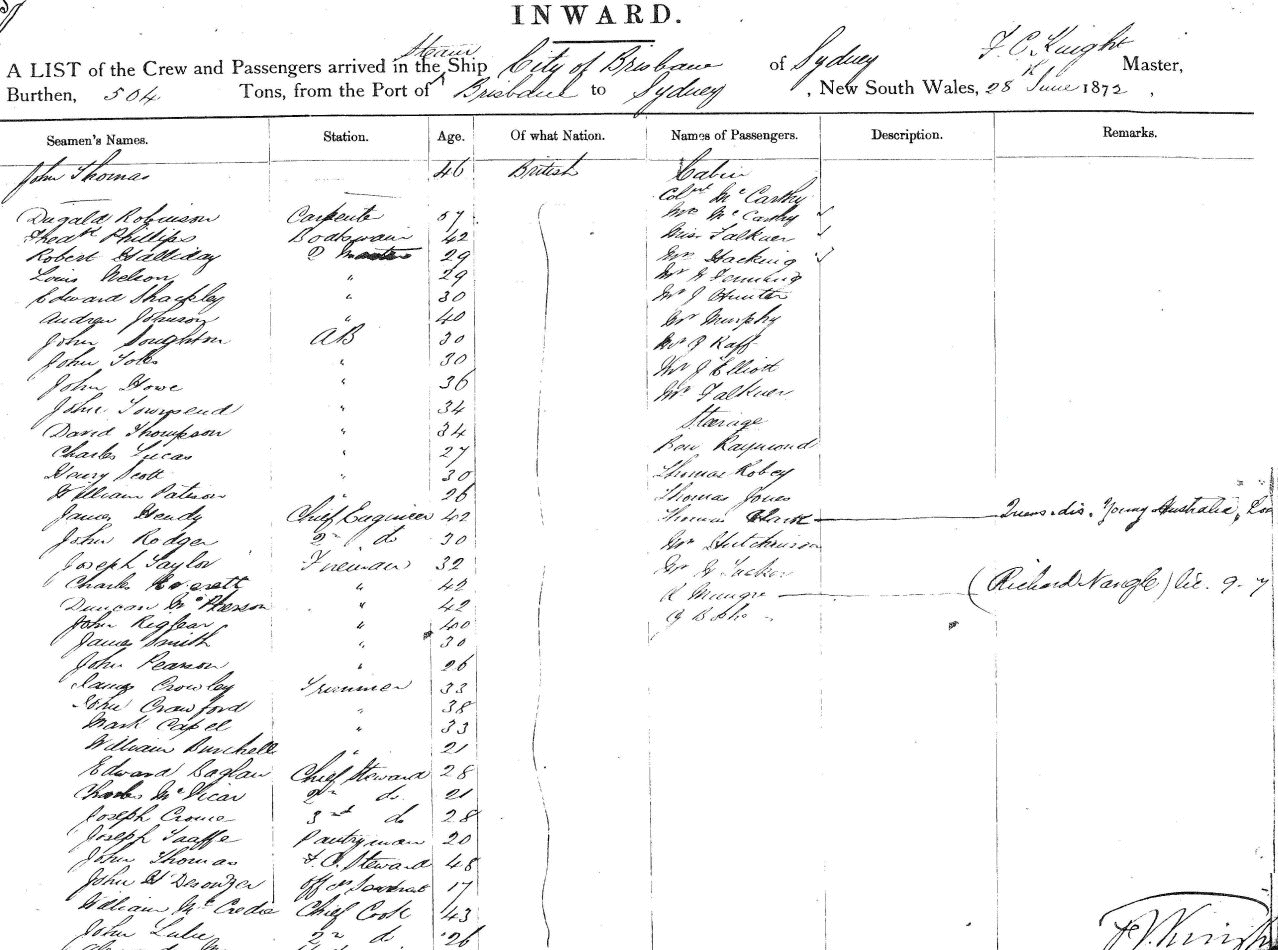 INWARD.
A LIST of the Crew and Passengers arrived in the Steam Ship City of Brisbane of Sydney F. C. Knight Master,
Burthen, 504 Tons, from the Port of Brisbane to Sydney, New South Wales, 28th June 1872,
Seamen's Names. Station. Age. Of what Nation. Names of Passengers. Description. Remarks.
John Thomas 46 British Cabin
Colnl McCarthy
Dugald Robinson Carpenter 57 Mrs McCarthy
Fredk Phillips Boatswain 42 Miss Falkner
Robert Halliday Q Master 29 Mrs Hacking
Louis Nelson " 29 Mr Fenning
Edward Shackley " 30 Mr J Hunter
Andrew Johnson " 40 Mr Murphy
John AB 30 Mr Raff
John " 30 Mr J Elliott
John Howe " 36 Mr Falkner
John Townsend " 34 Steerage
David Thompson " 34 Raymond
Charles Lucas " 27 Thomas Robey
Henry Scott " 30 Thomas Jones
William Paterson " 26 Thomas Clark Queens. dis. Young Australia,
James Hendy Chief Engineer 42 Mr Hutchinson
John Rodger 2nd do 30 Mr
Joseph Taylor Fireman 32 (Richard Nangle) 9. 7
Charles Everett " 42
Duncan McPherson " 42
John " 40
James Smith " 30
John Pearson " 26
James Crowley Trimmer 33
John Crawford " 38
Mark Capel " 33
William Burchell " 21
Edward Baglan Chief Steward 28
Charles McVicar 2nd do 21
Joseph Crome 3rd do 28
Joseph Taaffe Pantryman 20
John Thomas F. C. Steward 48
John H Desouzer Offrs Servant 17
William McCredie Chief Cook 43
John 2nd do 26